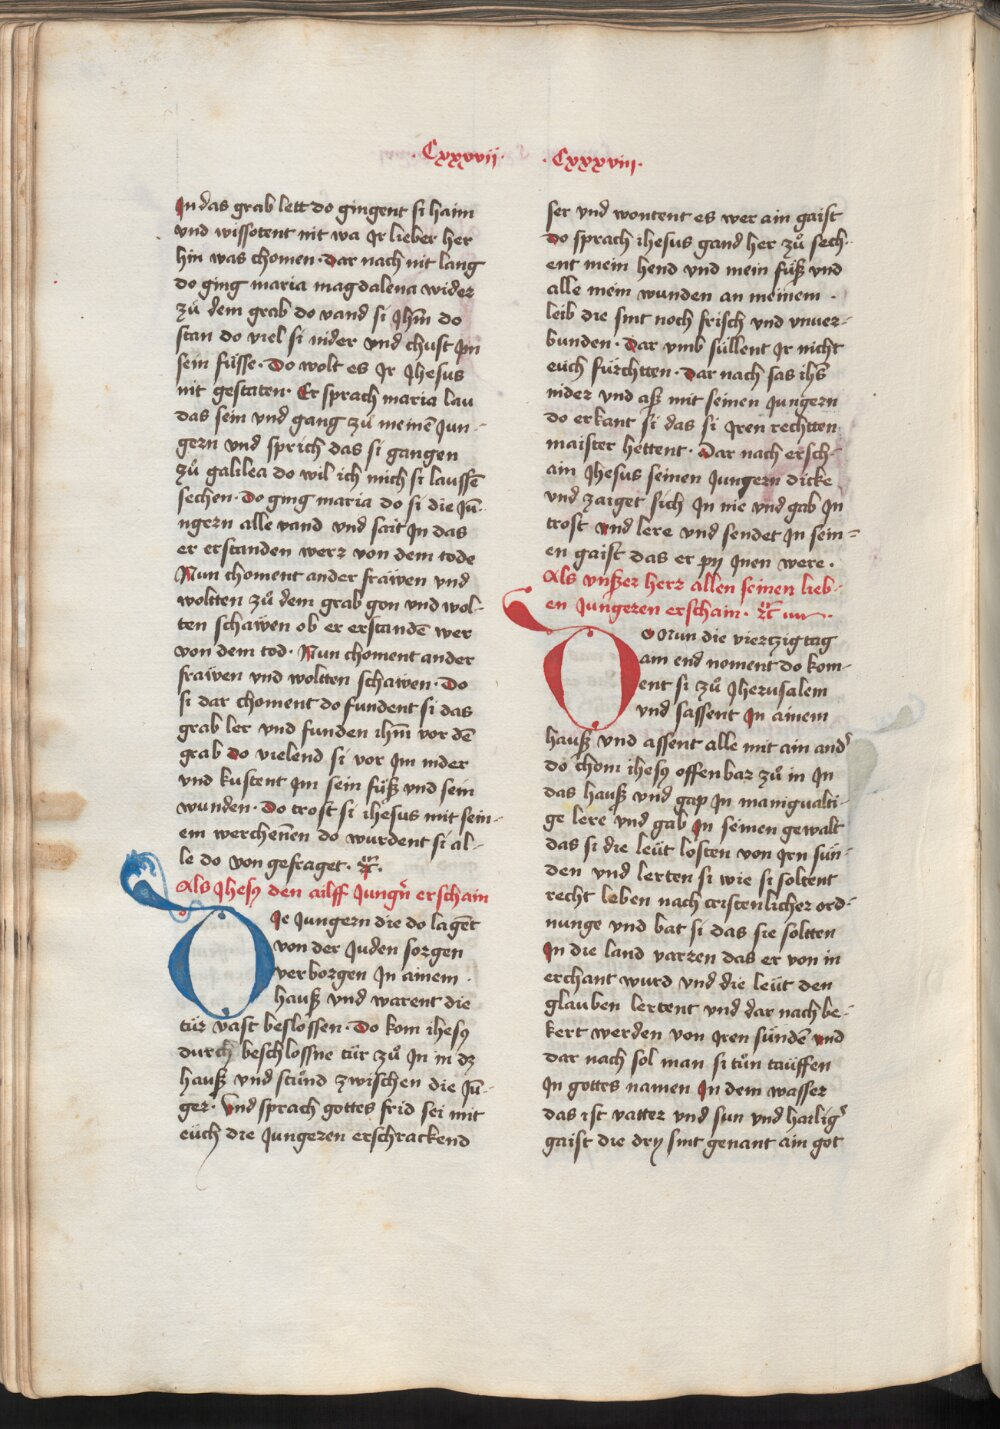 ·Cxxxvii·
In das grab lett do gingent si haim
vnd wissotent nit wa Ir lieber her
hin was chomen· Dar nach nit lang
do ging maria magdalena wider
zů dem grab do vand si Jhm̄ do
stan do viel si nider vnd chust Im
sein füsse· Do wolt es Ir Jhesus
nit gestaten· Er sprach maria lau
das sein vnd gang zů meinē Jun-
gern vnd sprich das si gangen
zů galilea do wil ich mich si laussē
sechen· Do ging maria do si die Jū-
ngern alle vand vnd sait In das
er erstanden werz von dem tode
Nun choment ander fräwen vnd
woltten zů dem grab gon vnd wol-
ten schäwen ob er erstandē wer
von dem tod· Nun choment ander
fräwen vnd woltten schawen· Do
si dar choment do fundent si das
grab ler vnd funden ihm̄ vor dē
grab do vielend si vor Im nider
vnd kustent Im sein füß vnd sein
wunden· Do trost si ihesus mit sein-
em werchenen do wurdent si al-
le do von gefraget·
Als Jhesꝰ den ailff Jungn̄ erschain
DIe Jungern die do lagēt
von der Juden sorgen
verborgen In ainem
hauß vnd warent die
tür vast beslossen· Do kom ihesꝰ
durch beschlossne tür zů In in dz
hauß vnd stůnd zwischen die Jū-
ger· Vnd sprach gottes frid sei mit
eüch die Jungeren erschrackend
·Cxxxviii·
ser vnd wontent es wer ain gaist
Do sprach ihesus gand her zů sech-
ent mein hend vnd mein füß vnd
alle mein wunden an meinem
leib die sint noch frisch vnd vnuer-
bunden· Dar vmb süllent Ir nicht
euch fürchtten· Dar nach sas ihs̄
nider vnd aß mit seinen Jungern
do erkant si das si Iren rechtten
maister hettent· Dar nach ersch-
ain Jhesus seinen Jungern dicke
vnd zaiget sich In nie vnd gab In
trost vnd lere vnd sendet In sein-
en gaist das er py Inen were·
Als vnßer herz allen seinen lieb-
en Jungeren erschain·
DO Nun die viertzig tag
am end noment do kom-
ent si zů Jherusalem
vnd sassent In ainem
hauß vnd assent alle mit ain and'
do chom ihesꝰ offenbar zů in In
das hauß vnd gap In manigualti-
ge lere vnd gab In seinen gewalt
das si die leüt losten von Irn sün-
den vnd lerten si wie si soltent
recht leben nach cristenlicher ord-
nunge vnd bat si das sie soltten
In die land varzen das er von in
erchant wurd vnd die leüt den
glauben lertent vnd dar nach be-
kert werden von Iren sündē vnd
dar nach sol man si tůn taüffen
In gottes namen In dem wasser
das ist vatter vnd sun vnd hailig'
gaist die dry sint genant ain got